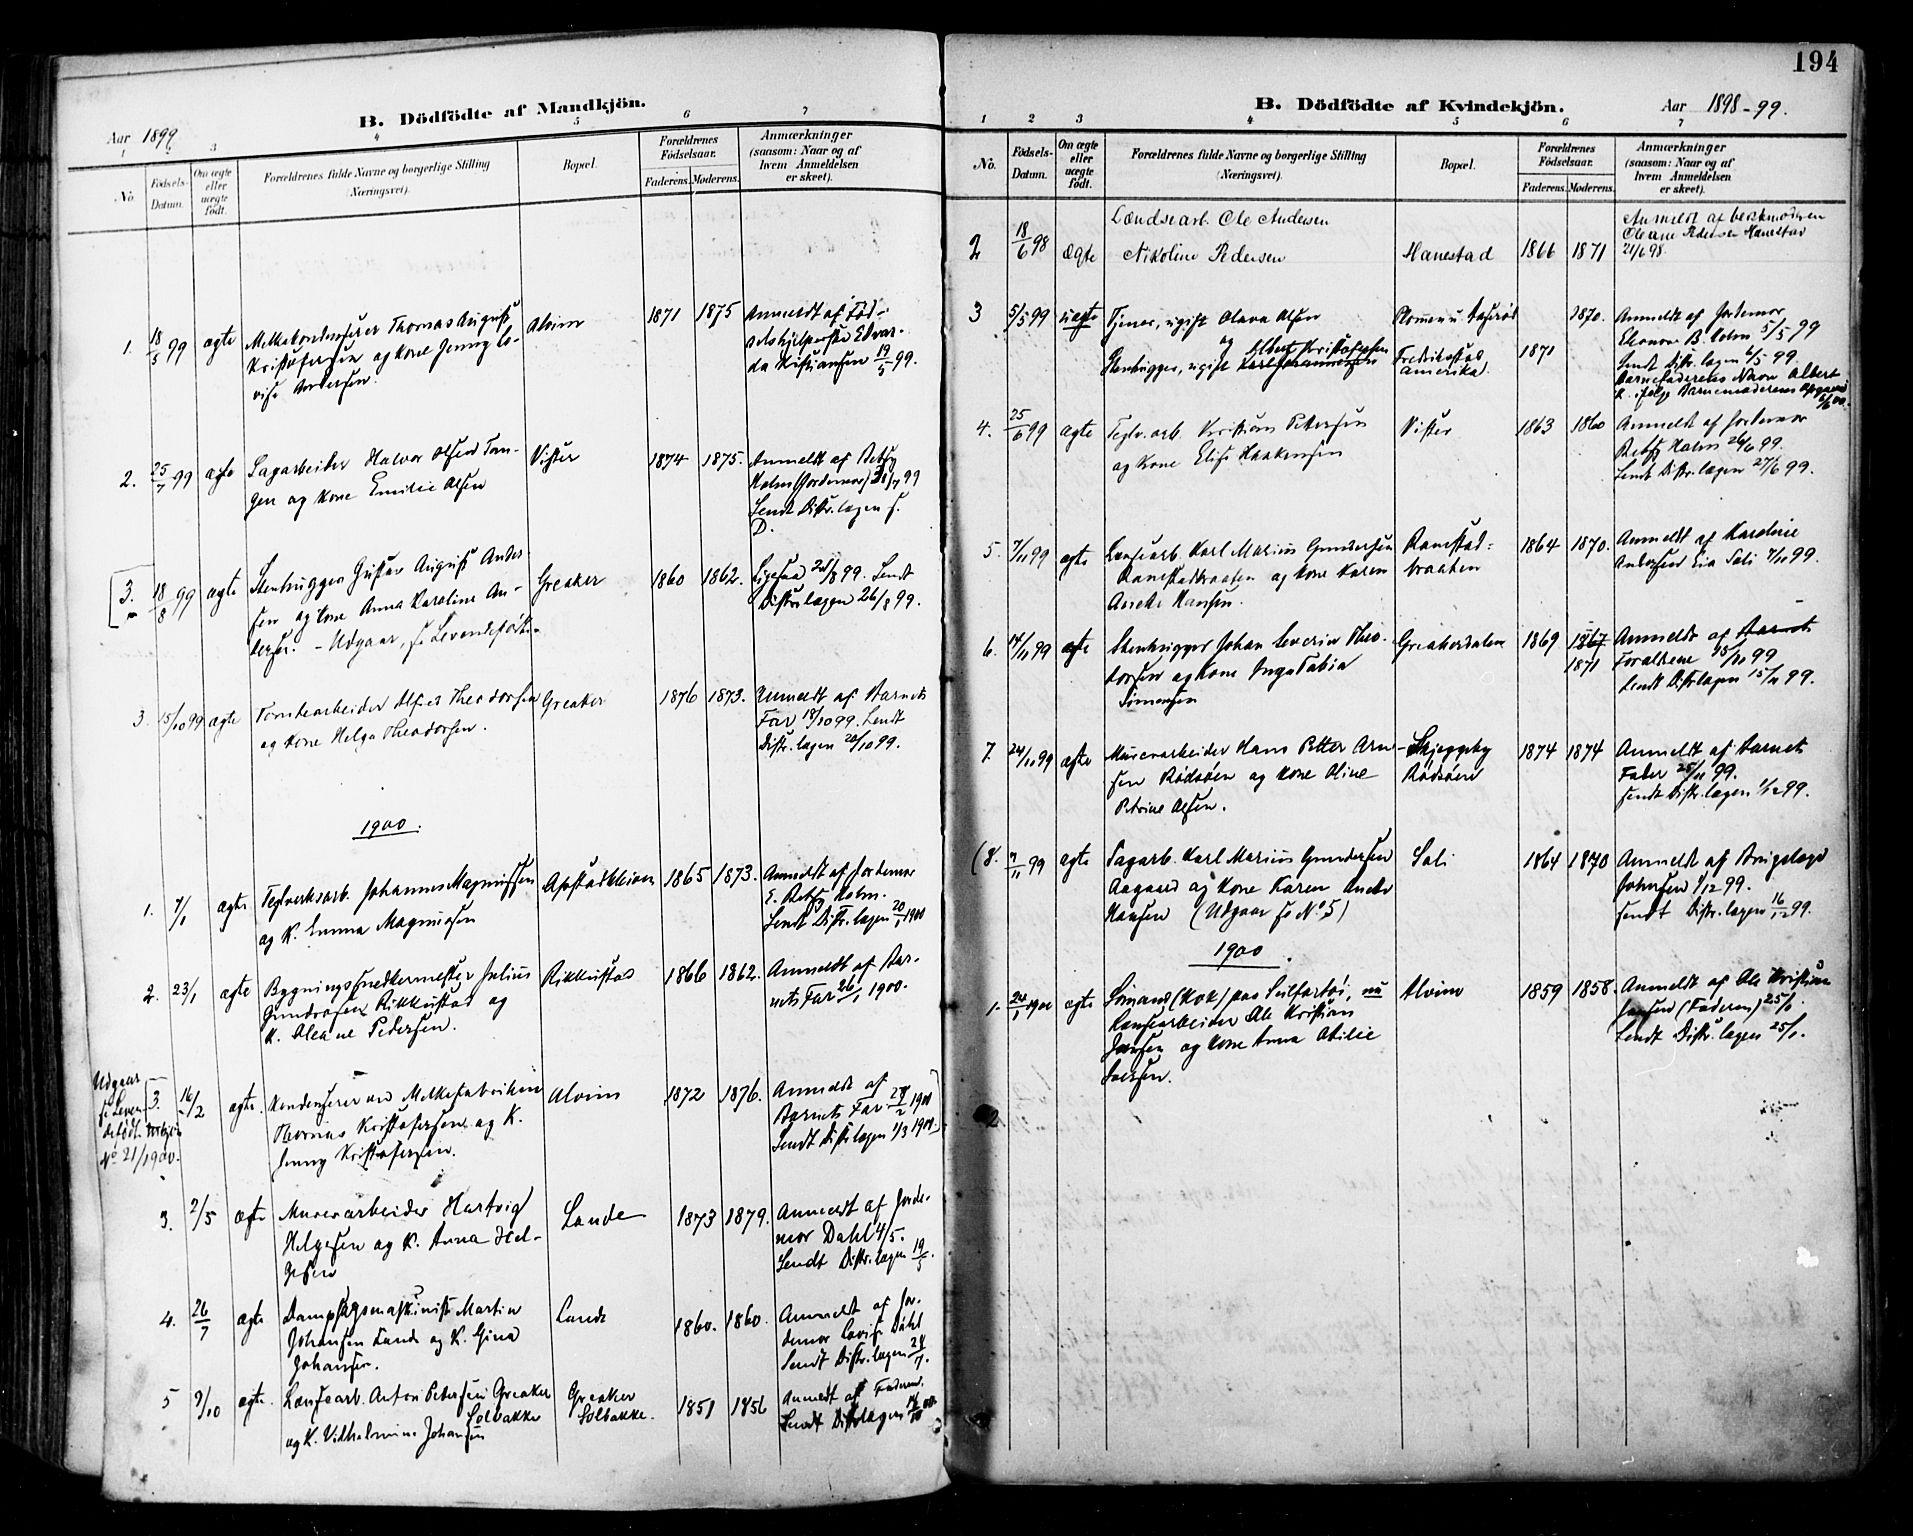 B. Dödfödte af Mandkjön.
Aar 1899
1 2 3 4 5 6 7
No. Födsels-Datum. Om ægte eller uægte födt. Forældrenes fulde Navne og borgerlige Stilling (Næringsvei). Bopæl. Forældrenes Födselsaar. Faderens. Moderens. Anmærkninger (saasom: Naar og af hvem Anmeldelsen er skeet).
1. 18/5 99 ægte Melkekondenserer Thomas August Alvim 1871 1875 Anmeldt af Fød-
Kristofersen og Kone Jenny Lo- selshjelperske Edvar-
vise Andersen. da Kristiansen 19/5 99.
2. 25/7 99 ægte Sagarbeider Halvor Olsen Tan- Vister 1874 1875. Anmeldt af Betsy
gen og Kone Emilie Olsen Holm (Jordemor) 31/7 99
Sendt Distr.lægen s.
D.
[3. 18/8 99 ægte Stenhugger Gustav August Ander- Greaker 1860 1862. Ligesaa 24/8 99. Sendt
sen og Kone Anna Karoline An- Distr.lægen 26/8 99.
dersen. - Udgaar, se Levendefødte.
3. 15/10 99 ægte Tomtearbeider Alfred Theodorsen Greaker 1876 1873. Anmeldt af Barnets
og Kone Helga Theodorsen. Far 18/10 99. Sendt
Distr.lægen 20/10 99.
1900.
1. 7/1 ægte Teglverksarb. Johannes Magnussen Opstadkleiven 1865 1873. Anmeldt af Jordemor
og K. Emma Magnussen E. Betsy Holm.
Sendt Distr.lægen 20/1 1900
2. 23/1 ægte Bygningssnedkermester Julius Rikkustad 1866 1862. Anmeldt af Bar-
Gundersen Rikkustad og nets Far 26/1 1900.
K. Oleane Pedersen.
Udgaar
se Leven-
defødt
No 21/1900.
[3. 16/2 ægte. Kondenserer ved Melkefabriken Alvim 1872 1876. Anmeldt af
Thomas Kristofersen og K. Barnets Far 27/2 1900
Jenny Kristofersen. Sendt Distr.lægen 1/3 1900.]
3. 2/5 ægte Murerarbeider Hartvig Lande 1873 1879. Anmeldt af Jorde-
Helgesen og K. Anna Hel- mor Dahl 4/5.
gesen Sendt Distr.lægen 19/5.
4. 26/7 ægte Dampsagsmaskinist Martin Lande 1860. 1860. Anmeldt af Jor-
Johansen Lande og K. Gina demor Lovise Dahl
Johansen. Sendt Distr.lægen 28/7.
5 9/10 ægte. Lænsearb. Anton Petersen Greaker Greaker 1851 1856 Anmeldt af Faderen.
Solbakke Solbakke. Sendt Distr.lægen
og K. Vilhelmine Johansen
194
B. Dödfödte af Kvindekjön. Aar 1898-99.
1 2 3 4 5 6 7
No. Födsels-Datum. Om ægte eller uægte födt. Forældrenes fulde Navne og borgerlige Stilling (Næringsvei). Bopæl. Forældrenes Födselsaar. Faderens. Moderens. Anmærkninger (saasom: Naar og af hvem Anmeldelsen er skeet).
Lændsearb. Ole Andersen Anmeldt af
2 18/6 98 Ægte Nikoline Pedersen Hanestad 1866 1871 Oleane Pedersen Hanestad
21/6 98.
3 5/5 99 uægte Tjener, ugift Olava Olsen 1870. Anmeldt af Jordemor
og Albert Kristofersen Eleonore B. Holm 5/5 99
Stenhugger, ugift Karl Johannessen Fredrikstad 1871 Sendt Distr.lægen 6/5 99.
Amerika. Barnefaderens Navn Albert
K. ifølge Barnemoderens Opgave
4. 25/6 99 ægte Teglv.arb. Kristian Petersen Vister 1863 1860 Anmeldt af Jordemor
og Kone Elise Haakensen Betsy Holm 26/6 99.
Sendt Distr.lægen 27/6 99.
5. 7/11 99 ægte Lænsearb. Karl Marius Gundersen Ramstad- 1864 1870. Anmeldt af Karoline
Ramstadbraaten og Kone Karen braaten Andersen Lia Soli 7/11 99.
Anette Hansen.
6. 14/11 99 ægte Stenhugger Johan Severin Theo- Greakerdalen 1869 1867 Anmeldt af Barnets
dorsen og Kone Inga Tabia 1871 Forældrene 15/11 99
Simensen Sendt Distr.lægen 15/11 99.
7. 24/11 99 ægte Murerarbeider Hans Petter Arn- Skjeggeby 1874 1874 Anmeldt af Barnets
sen Rødsøen og Kone Oline Rødsøen Fader 25/11 99.
Petrine Olsen. Sendt Distr.lægen 1/12 99.
(8. 7/11 99 ægte Sagarb. Karl Marius Gundersen Soli 1864 1870 Anmeldt af Brugslæge
Aagaard og Kone Karen Anette Johnsen 1/12 99.
Hansen (Udgaar se No. 5) Sendt Distr.lægen 16/12 99.
1900.
1. 24/1 1900 ægte Sømand (Kok) paa Seilfartøi, nu Alvim 1859 1858. Anmeldt af Ole Kristian
Lænsearbeider Ole Kristian Jensen (Faderen) 25/1.
Jensen og Kone Anna Otilie Sendt Distr.lægen 25/1.
Iversen.
2